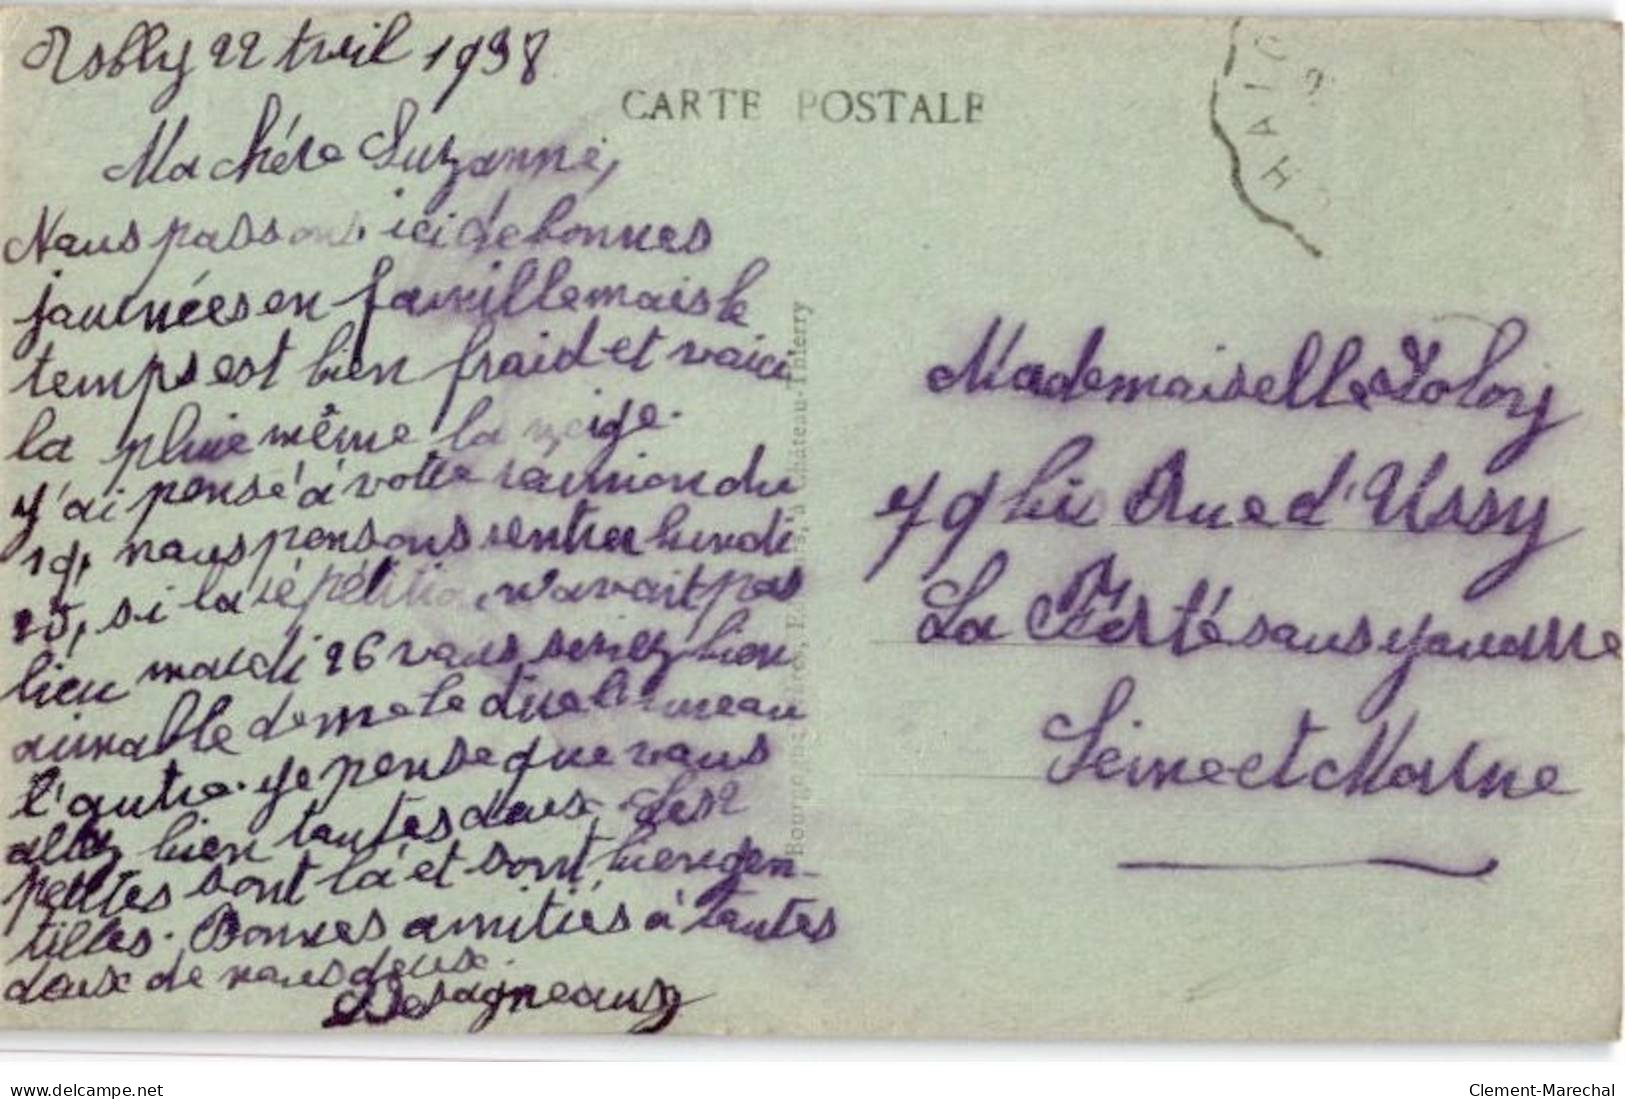 22 Avril 1938
CARTE POSTALE
Ma chère Suzanne,
Nous passons ici de bonnes
journées en famille mais le
temps est bien froid et voici
la pluie même la neige.
J'ai pensé à votre réunion du
19, nous pensons rentrer lundi
25, si la répétition n'avait pas
lieu mardi 26 vous seriez bien
aimable de me le dire
l'autre. Je pense que vous
allez bien toutes deux. Les 2
petites sont là et sont bien gen-
tilles. Bonnes amitiés à toutes
deux de nous deux.
Desagneaux
Bourgogne Frères, Editeurs, à Château-Thierry
Mademoiselle
79 bis Rue d'Ussy
La Ferté sous Jouarre
Seine et Marne
delcampe.net
Clement-Marechal